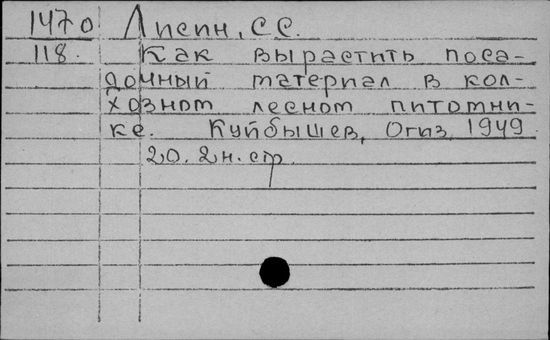 1470 Лисин, С С.
118. Как вырастить поса-
дочный материал в кол-
хозном лесном питомни-
ке. Куйбышев, Огиз, 1949.
20. 2 н. стр